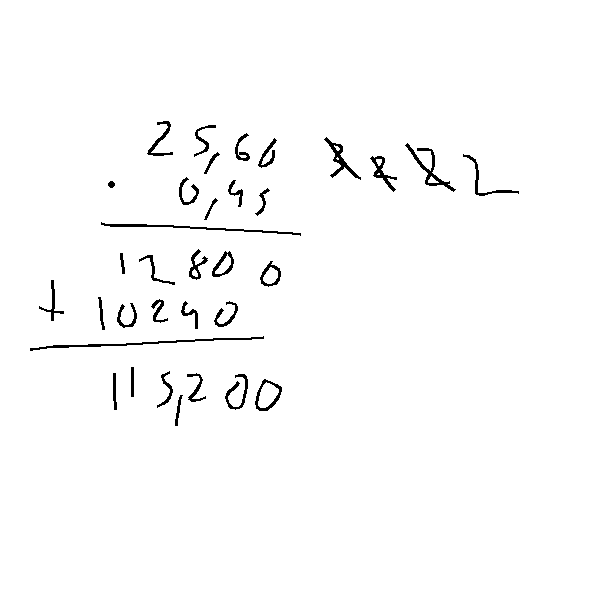 25,60 3 2 2 2
. 0,45
12800
+ 10240
115,200